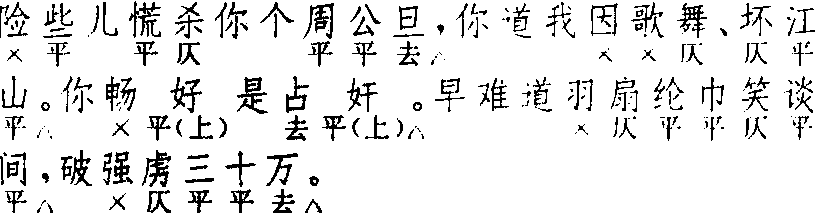 险些儿慌杀你个周公旦，你道我因歌舞、坏江
×平 平仄 平平去△ × ×仄 仄平
山。你畅 好 是占 奸 。早难道羽扇纶巾笑谈
平△ ×平(上) 去平(上)△ ×仄平平仄平
间，破强虏三十万。
平△ ×仄平平去△